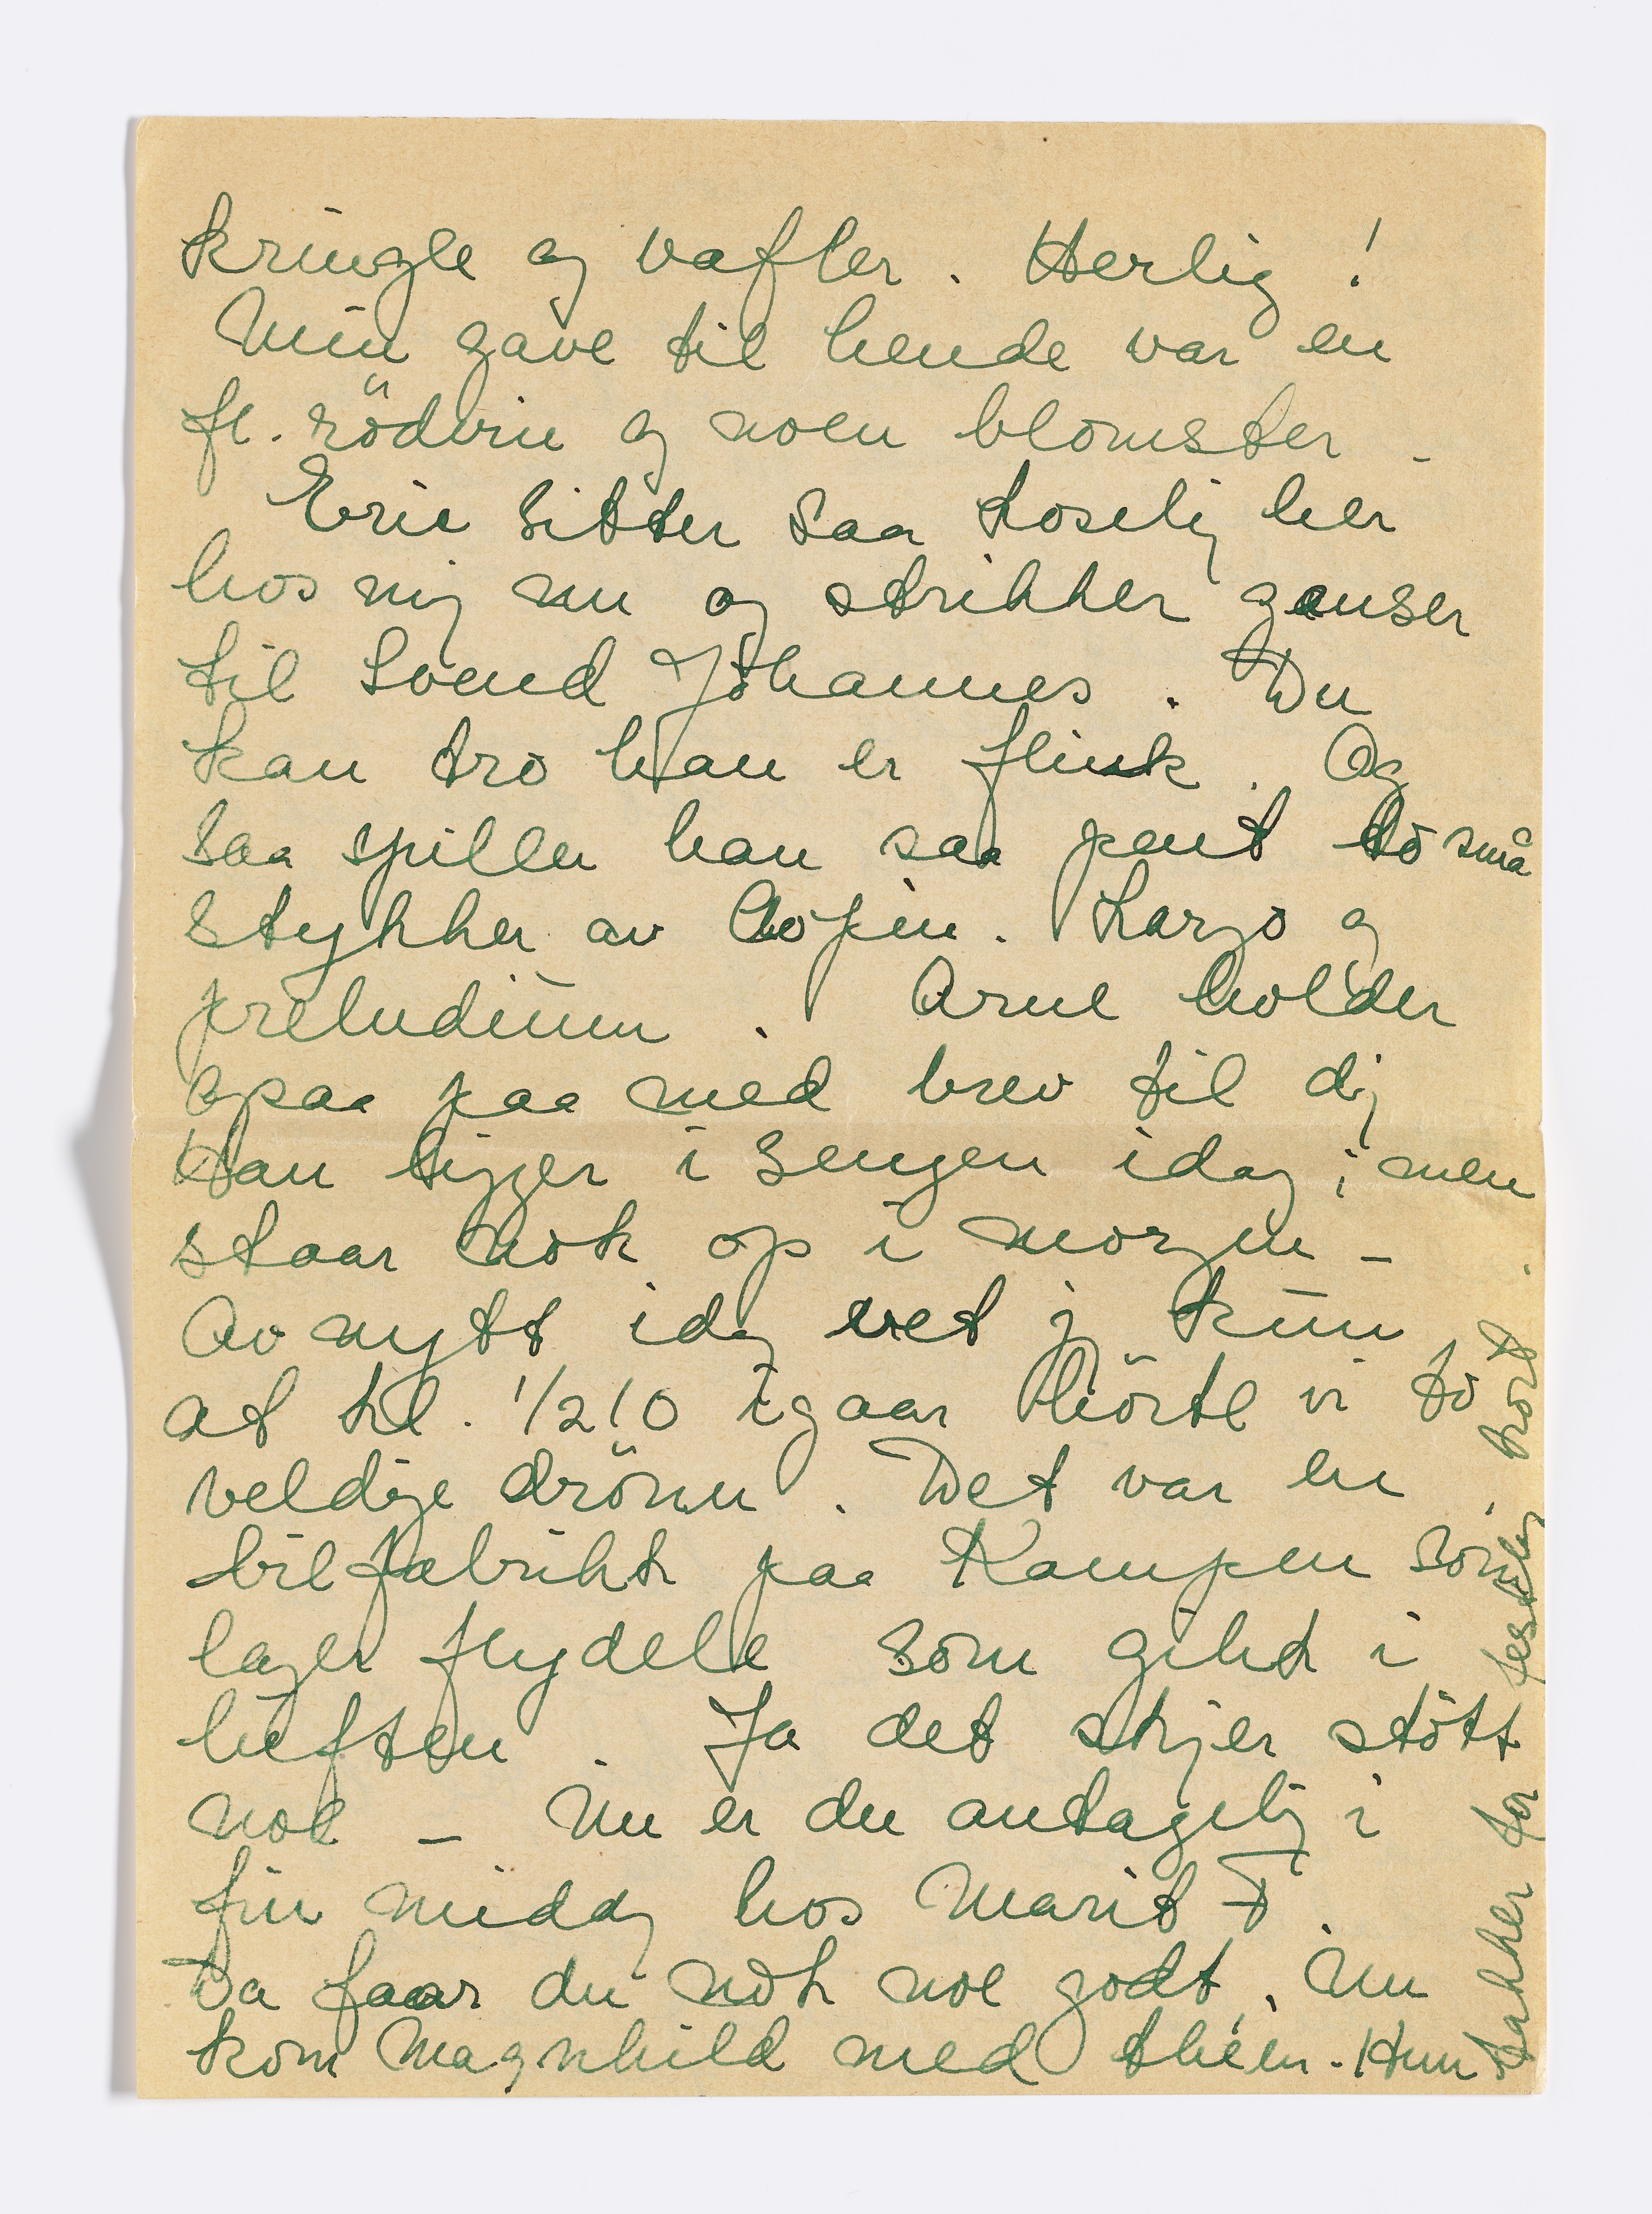 kringle og vafler. Herlig!
Min gave til hende var en
fl. rödvin og noen blomster –
Eric sitter saa koselig her
hos mig nu og strikker genser
til Svend Johannes. Du
kan tro han er flink. Og
saa spiller han saa pent to små
stykker av Copin. Largo og
preludium. Arne holder
ogsaa paa med brev til dig
Han ligger i sengen idag; men
staar nok op i morgen –
Av nytt idag vet jg kun
at kl. 1/210 igaar hörte vi to
veldige drönn. Det var en
bilfabrikk paa Kampen som
lager flydele som gikk i
luften. Ja det skjer stött
noe – Nu er du antagelig i
fin middag hos Marit F.
Da faar du nok noe godt. Nu
kom Magnhild med théen. Hun
takker for festlig kort.